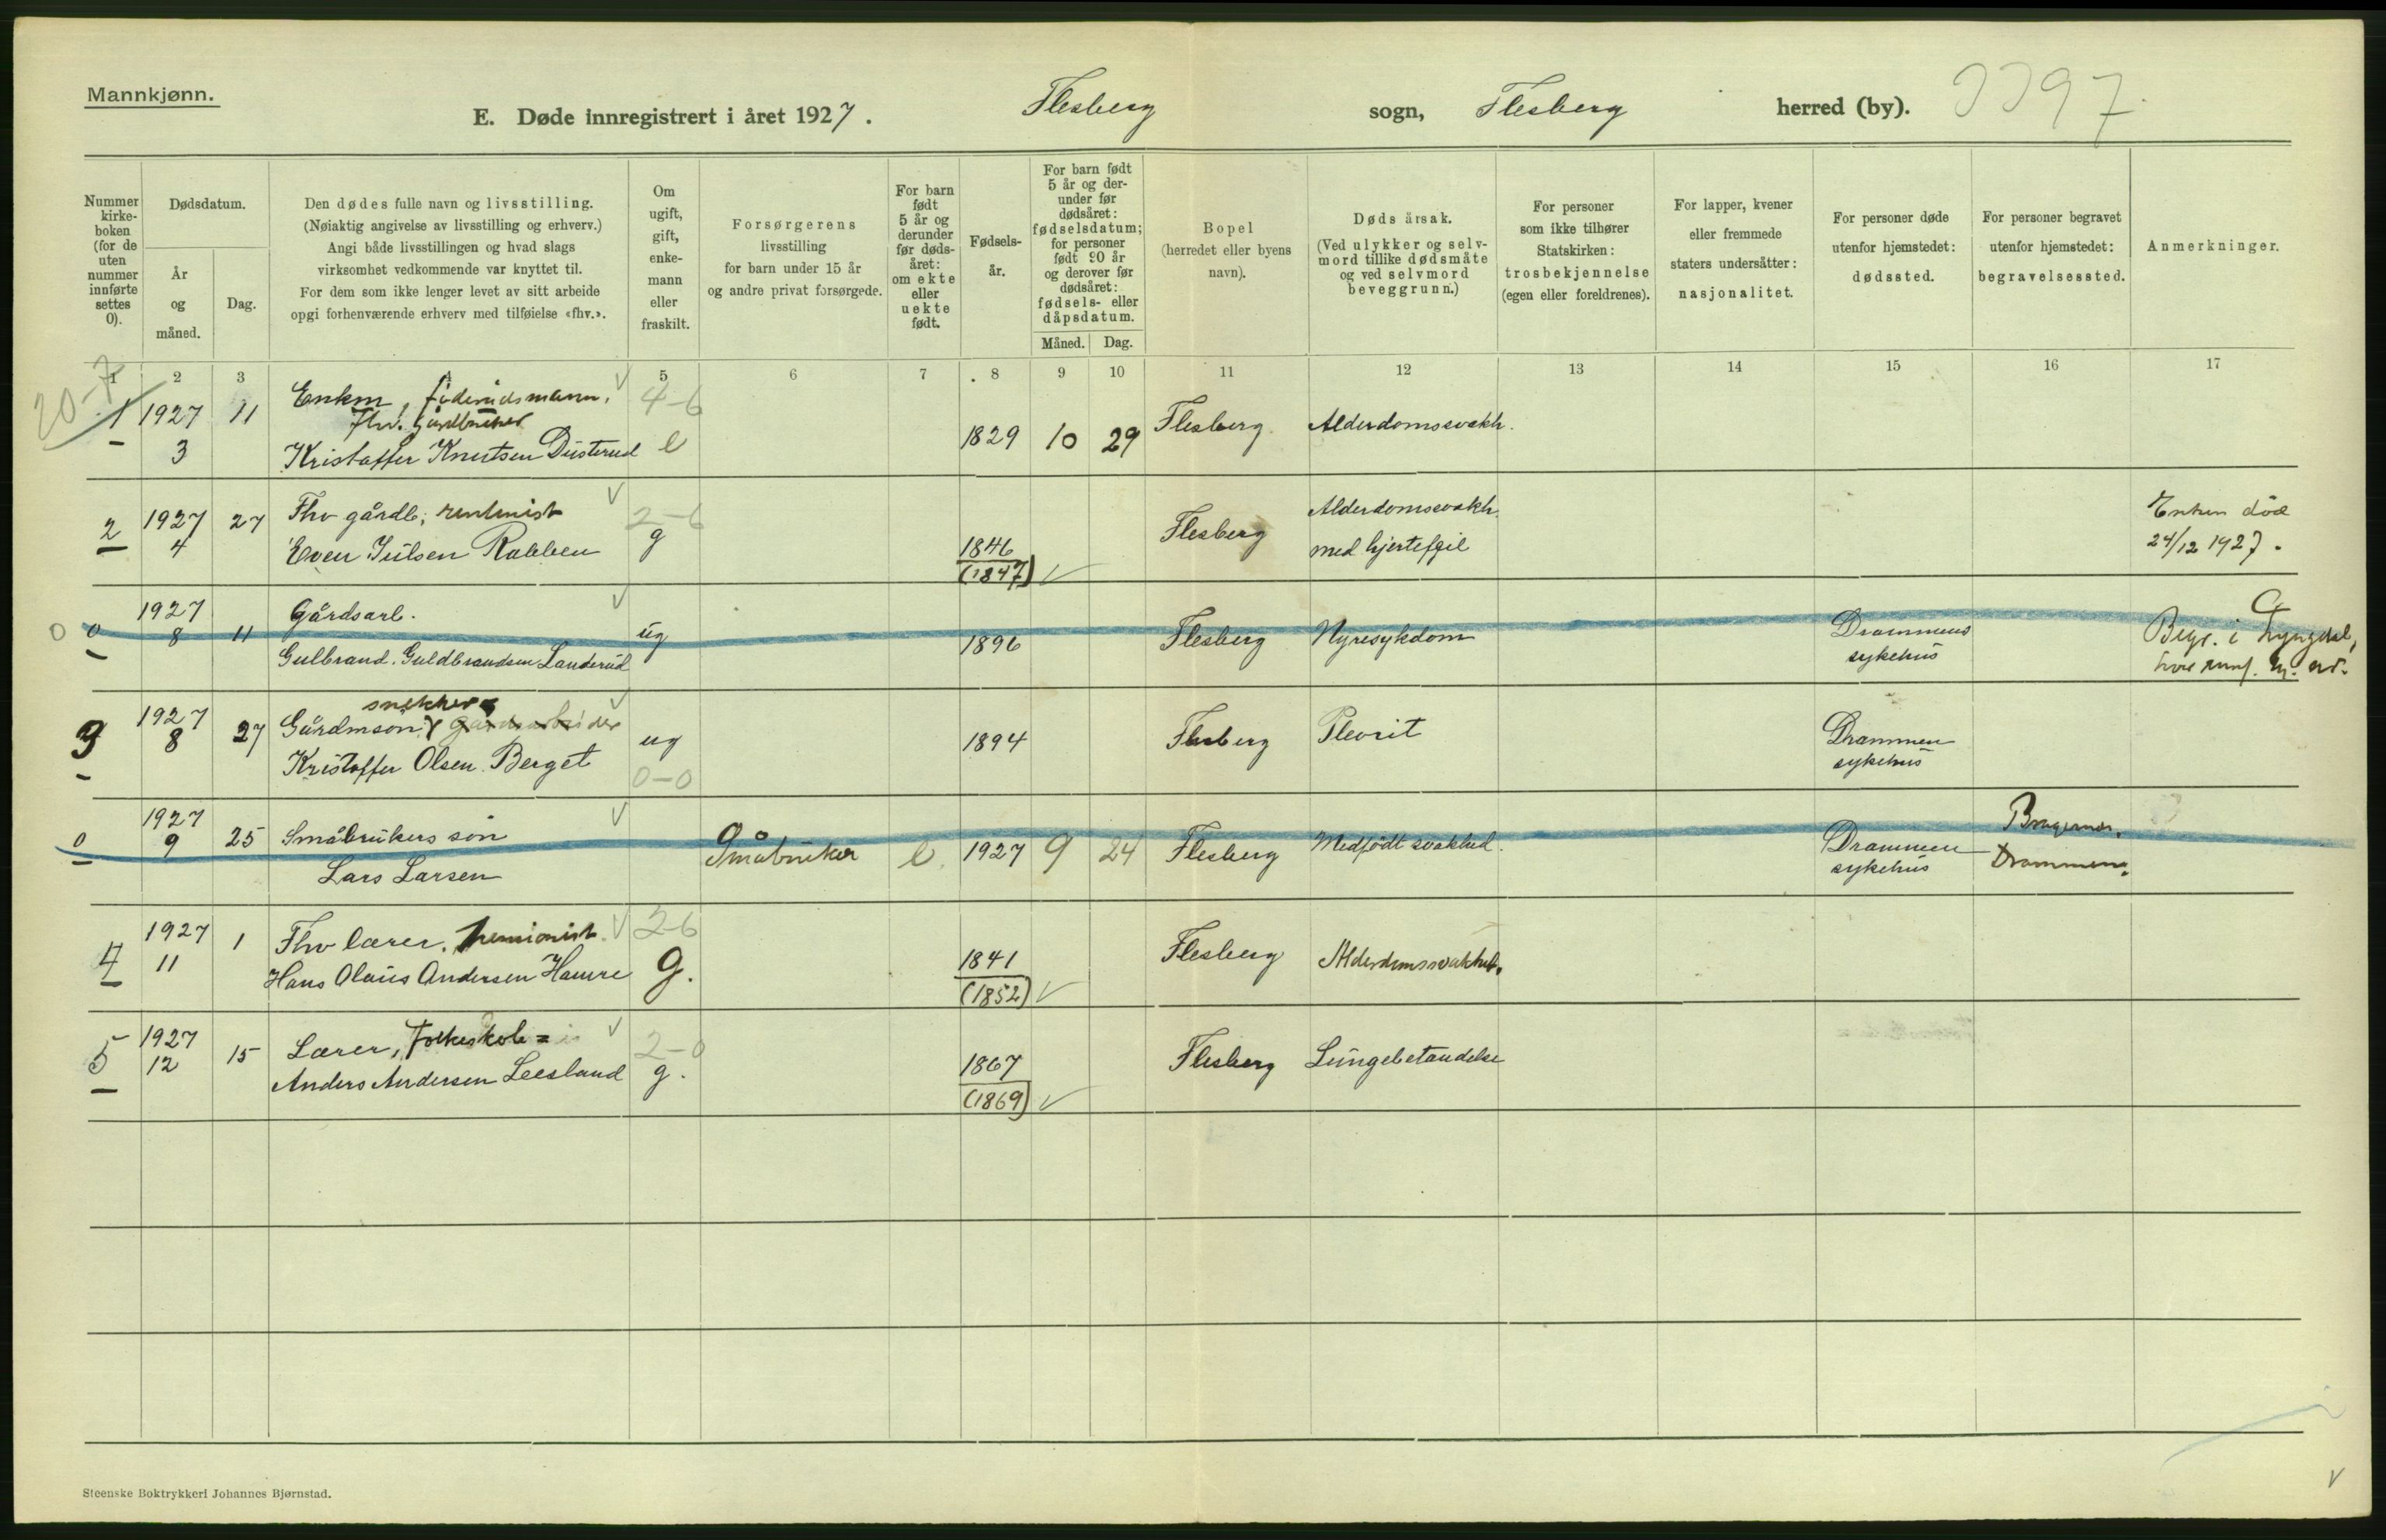 Mannkjønn.
E. Døde innregistrert i året 1927. Flesberg sogn, Flesberg herred (by).
Nummer kirke-boken (for de uten nummer innførte settes 0).
Dødsdatum.
År og måned.
Dag.
Den dødes fulle navn og livsstilling.
(Nøiaktig angivelse av livsstilling og erhverv.)
Angi både livsstillingen og hvad slags
virksomhet vedkommende var knyttet til.
For dem som ikke lenger levet av sitt arbeide
opgi forhenværende erhverv med tilføielse «fhv.».
Om ugift, gift, enke-mann eller fraskilt.
Forsørgerens
livsstilling
for barn under 15 år
og andre privat forsørgede.
For barn født 5 år og derunder før døds-året: om ekte eller uekte født.
Fødsels-år.
For barn født 5 år og der-under før dødsåret: fødselsdatum; for personer født 90 år og derover før dødsåret: fødsels- eller dåpsdatum.
Måned. Dag.
Bopel
(herredet eller byens navn).
Dødsårsak.
(Ved ulykker og selv-mord tillike dødsmåte og ved selvmord beveggrunn.)
For personer som ikke tilhører Statskirken: trosbekjennelse (egen eller foreldrenes).
For lapper, kvener eller fremmede staters undersåtter: nasjonalitet.
For personer døde utenfor hjemstedet: dødssted.
For personer begravet utenfor hjemstedet: begravelsessted.
Anmerkninger.
1 2 3 4 5 6 7 8 9 10 11 12 13 14 15 16 17
20-7
1 1927 11 Enkm, föderådsmann. 4-6
Fhv. Gårdbruker
3 Kristoffer Knutsen Dusterud e 1829 10 29 Flesberg Alderdomssvakh.
2 1927 27 Fhv gårdb, rentenist 2-6 Alderdomssvakh. Enken död
4 Even Julsen Rabben g 1846 Flesberg med hjertefeil 24/12 1927.
(1847)
0 0 1927 Gårdsarb.
8 11 Gulbrand Guldbrandsen Landerud ug 1896 Flesberg Nyresykdom Drammens sykehus Begr. i Lyngdal,
snekker
3 1927 27 Gårdmsön, gårdsarbeider
8 Kristoffer Olsen Berget ug 0-0 1894 Flesberg Plevrit Drammen sykehus
0 1927 25 Småbrukers sön
9 Lars Larsen Småbruker e. 1927 9 24 Flesberg Medfödt svakhed. Drammen sykehus Bragernes. Drammen.
4 1927 1 Fhv lærer, pensionist. 2-6
11 Hans Olaus Andersen Hamre g. 1841 Flesberg Alderdomssvakhet.
(1852)
5 1927 15 Lærer, Folkeskole= 2-0
12 Anders Andersen Leesland g. 1867 Flesberg Lungebetændelse
(1869)
Steenske Boktrykkeri Johannes Bjørnstad.